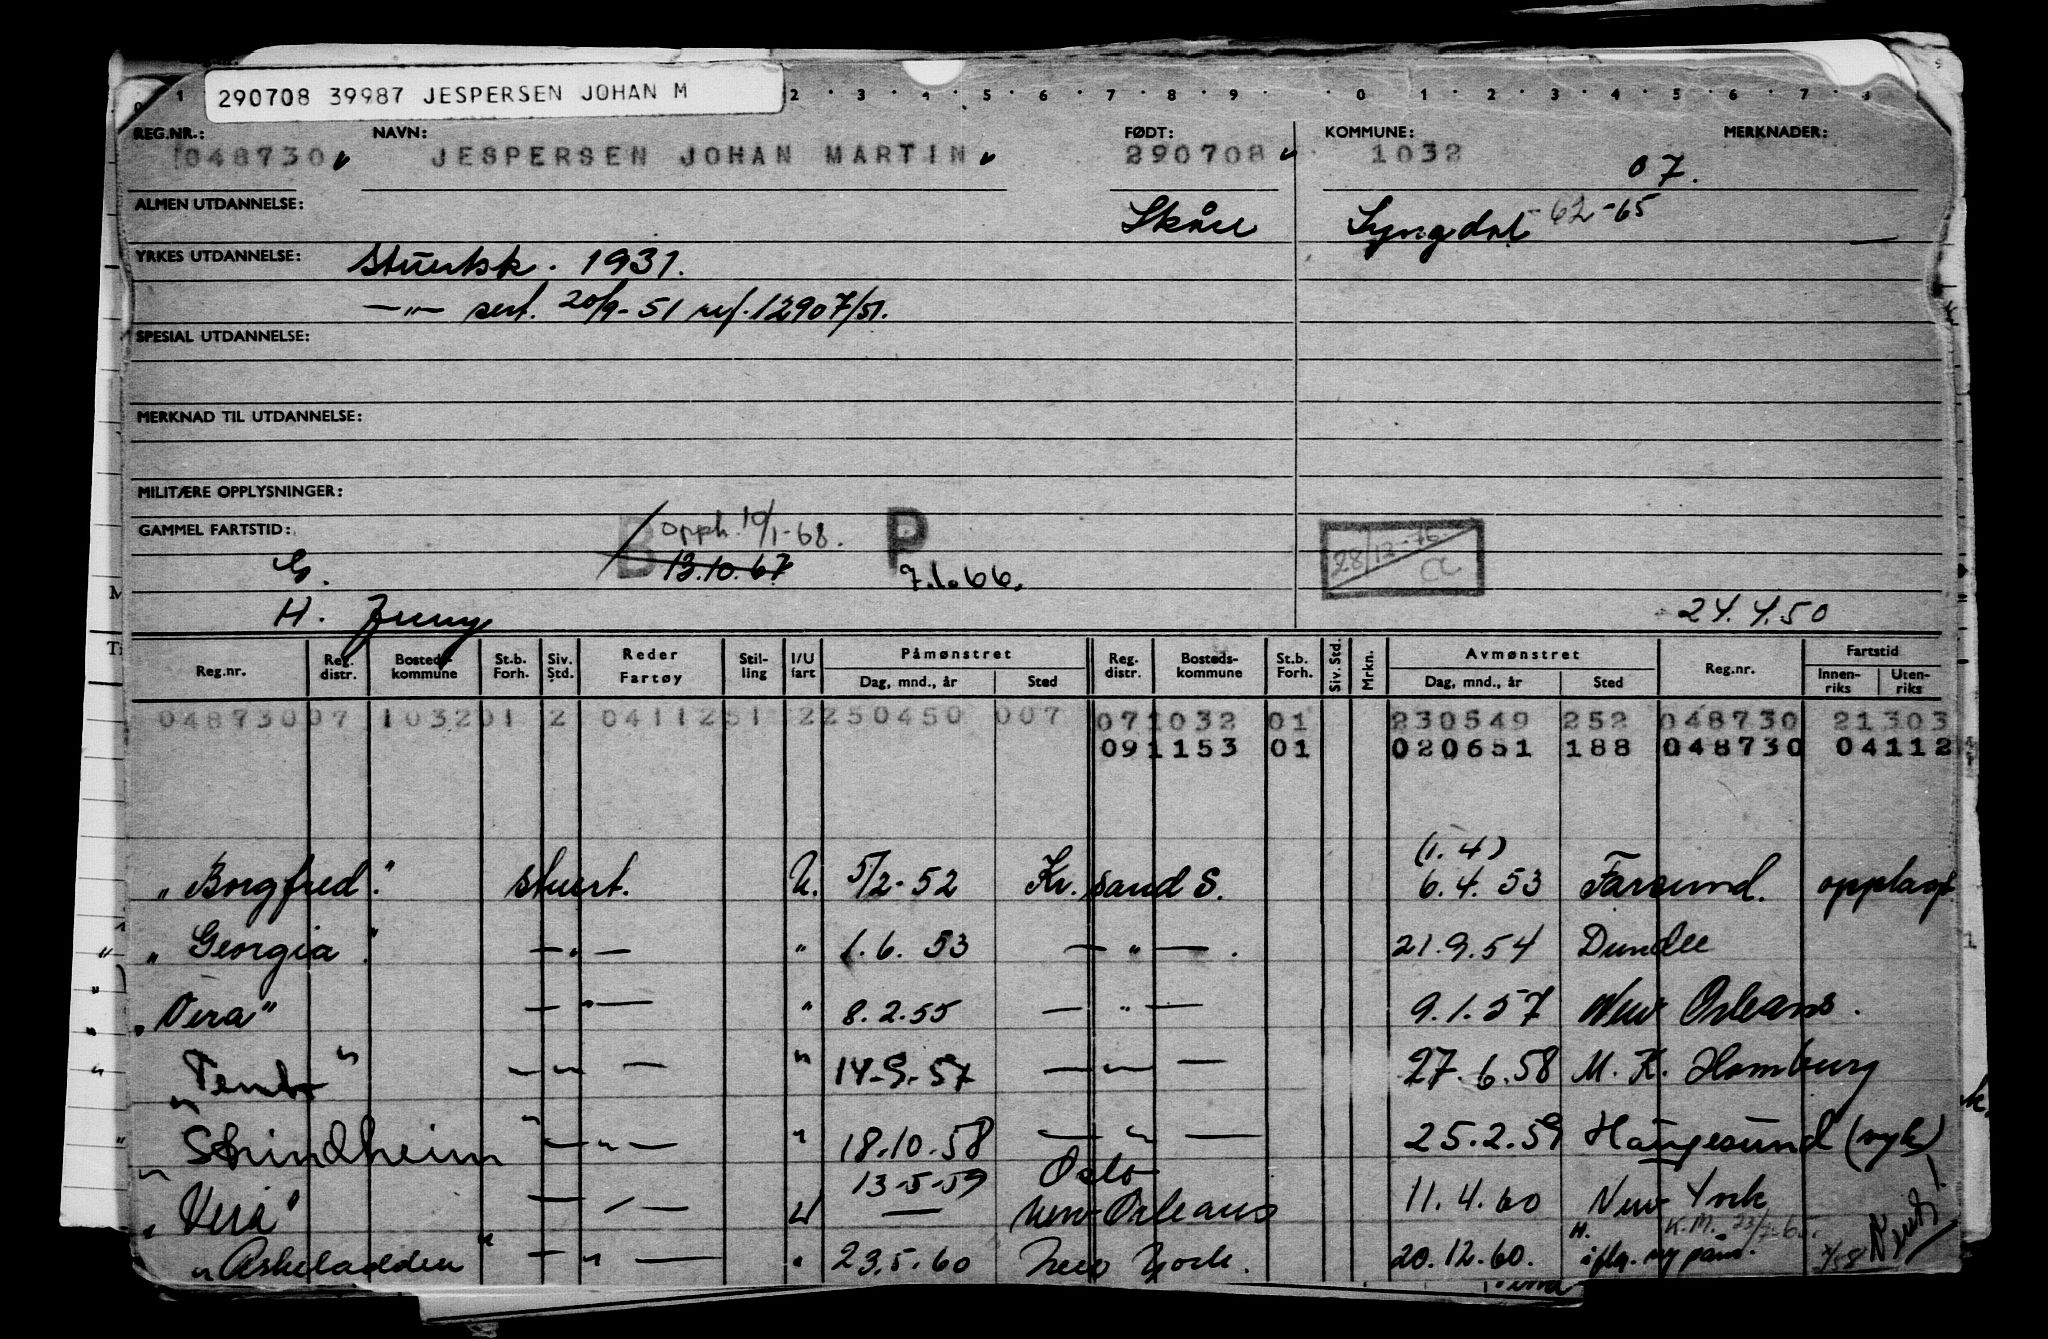 290708 39987 JESPERSEN JOHAN M
2 · 3 · 4 · 5 · 6 · 7 · 8 · 9 · 0 · 1 · 2 · 3 · 4 · 5 · 6 · 7 · 8
REG.NR.: NAVN: FØDT: KOMMUNE: MERKNADER:
048730 JESPERSEN JOHAN MARTIN 290708 1032 07.
ALMEN UTDANNELSE: Skåre Lyngdal 62-65
YRKES UTDANNELSE: Stuertsk. 1931.
—"— sert. 20/9-51 ref. 12907/51.
SPESIAL UTDANNELSE:
MERKNAD TIL UTDANNELSE:
MILITÆRE OPPLYSNINGER:
GAMMEL FARTSTID: B Opph. 10/1-68. P 28/12-76
G. 13.10.67 7.1.66.
H. 24.4.50
Reg.nr. Reg. distr. Bosteds-kommune St.b. Forh. Siv. Std. Reder Fartøy Stil-ling I/U fart Påmønstret Reg. distr. Bosteds-kommune St.b. Forh. Siv. Std. Mrkn. Avmønstret Reg.nr. Fartstid
Dag, mnd., år Sted Dag, mnd., år Sted Innen-riks Uten-riks
048730 07 1032 01 2 04112 51 2 250450 007 07 1032 01 230549 252 048730 21303
09 1153 01 020651 188 048730 04112
(1.4)
"Borgfred" stuert. U. 5/2-52 Kr.sand S. 6.4.53 Farsund. opplagt.
"Georgia" —"— " 1.6.53 —"—. 21.9.54 Dundee
"Vera" —"— " 8.2.55 —"— 9.1.57 New Orleans.
"Tento" —"— " 14-9-57 —"— 27.6.58 M.K. Hamburg
"Strindheim" —"— " 18.10.58 —"— 25.2.59 Haugesund (syk)
13-5-59 Oslo
"Vera" —"— U — New Orleans 11.4.60 New York
K.M.
"Askeladden" —"— " 23.5.60 New York. 20.12.60. H. iflg. ny påm.